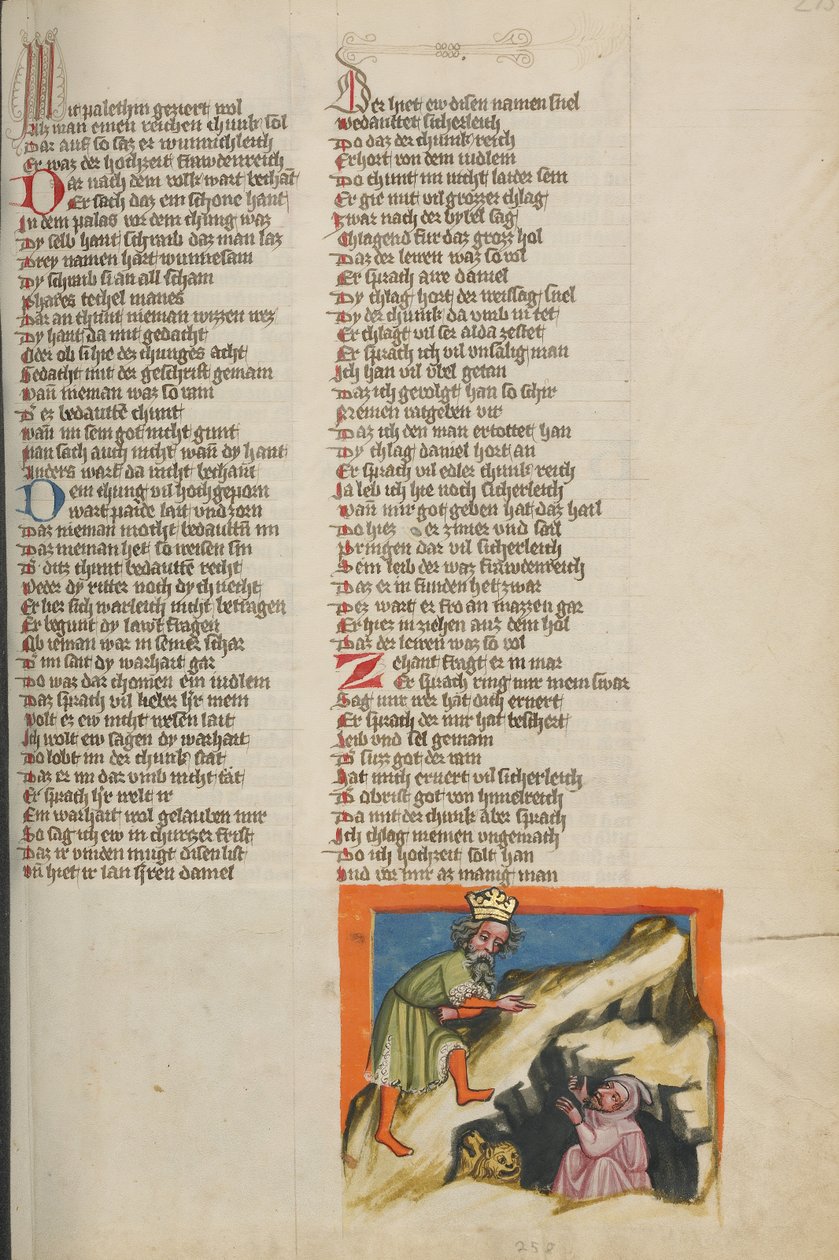 Mit palethin geziert wol
Als man einen reichen chunk sol
Dar auf so saz er wunnichleich
Er waz der hochzeit frawdenreich
Dar nach dem volk wart bechant
Er sach daz ein schone hant
In dem palas vor dem chung waz
Dy selb hant schraib daz man laz
Drey namen hart wunnesam
Dy schraib si an all scham
Phares techel manes
Dar an chunt nieman wizzen wez
Dy hant da mit gedacht
Oder ob si hie dez chunges acht
Gedacht mit der geschrift gemain
wan nieman waz so rain
Der ez bedautte chunt
wan im sein got nicht gunt
man sach auch nicht wan dy hant
Anders wart da nicht bechant
Dem chung vil hochgeporn
wart paide lait und zorn
Daz nieman mocht bedautten im
Daz nieman het so weisen sin
Der ditz chunt bedautte recht
Weder dy ritter noch dy chnecht
Er liez sich warleich nicht betragen
Er begunt dy lawt fragen
Ob ieman war in seiner schar
Der im sait dy warhait gar
Do waz dar chomen ein iudlein
Daz sprach vil lieber her mein
Wolt ez ew nicht wesen lait
Ich wolt ew sagen dy warhait
Do lobt im der chunk stat
Daz er im dar umb nicht tat
Er sprach her welt ir
Ein warhait wol gelauben mir
So sag ich ew in churtzer frist
Daz ir vinden mugt disen list
Und hiet ir lan herren daniel
Der hiet ew disen namen snel
Bedauttet sicherleich
Do daz der chunk reich
Erhort von dem iudlein
Do chunt im nicht laider sein
Er gie mit vil grozzer chlag
Zwar nach der bybel sag
Chlagend fur daz groz hol
Daz der lewen waz so vol
Er sprach awe daniel
Dy chlag hort der weissag snel
Dy der chunk da umb in tet
Er chlagt vil ser alda zestet
Er sprach ich vil unsalig man
Ich han vil ubel getan
Daz ich gevolgt han so schir
Meinen ratgeben vir
Daz ich den man ertottet han
Dy chlag daniel hort an
Er sprach vil edler chunk reich
Ja leb ich hie noch sicherleich
wan mir got geben hat daz hail
Do hiez er zimer und sail
Pringen dar vil sicherleich
Sein leib der waz frawdenreich
Daz er in funden het zwar
Dez wart er fro an mazzen gar
Er hiez in ziehen auz dem hol
Daz der lewen waz so vol
Zehant fragt er in mar
Er sprach ring mir mein swar
Sag mir wer hat dich ernert
Er sprach der mir hat beschert
Leib und sel gemain
Der suzz got der rain
Hat mich ernert vil sicherleich
Der obrist got von himelreich
Da mit der chunk aber sprach
Ich chlag meinen ungemach
Do ich hochzeit solt han
Und vor mir az manig man
258